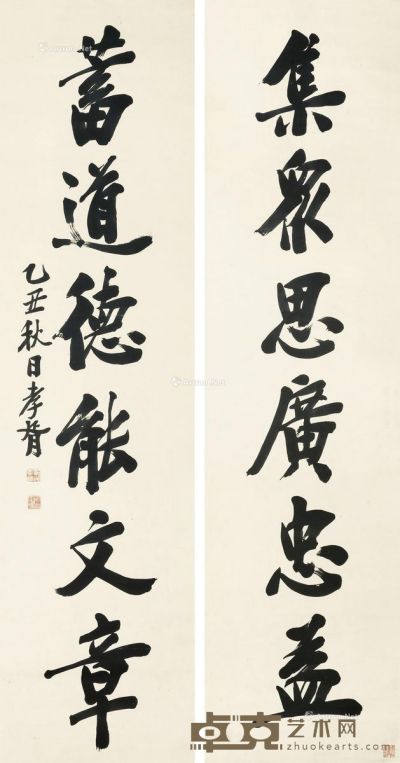 集眾思廣忠益
蓄道德能文章
乙丑秋日孝胥
卓克艺术网
zhuokearts.com